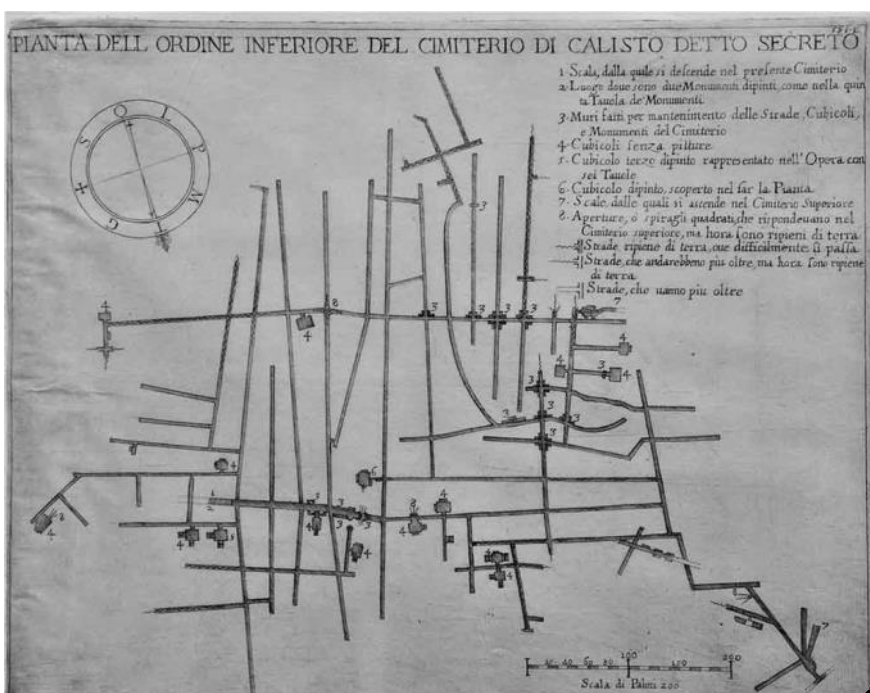 PIANTA DELL ORDINE INFERIORE DEL CIMITERIO DI CALISTO DETTO SECRETO
1 Scala, dalla quile si descende nel presente Cimiterio
2 Luogo doue sono due Monumenti dipinti, come nella quin
ta Tauola de' Monumenti
3. Muri fatti per mantenimento delle Strade, Cubicoli,
e Monumenti del Cimiterio
4 Cubicoli senza pitture
5. Cubicolo terzo dipinto rappresentato nell'Opera con
sei Tauole
6. Cubicolo dipinto, scoperto nel far la Pianta
7. Scale, dalle quali si ascende nel Cimiterio Superiore
8. Aperture, ò spiragli quadrati, che rispondeuano nel
Cimiterio superiore, ma hora sono ripieni di terra
Strade ripiene di terra, oue difficilmente si passa
Strade, che andarebbeno piu oltre, ma hora sono ripiene
di terra
Strade, che uanno piu oltre
S O L P M G
3
7
4
8
4
3
3
3
3
4
4
3
4
3
3
3
3
4
6
1
2
3
3
8
4
8
4
4
5
4
4
4
4
7
20 40 60 80 100 150 200
Scala di Palmi 200